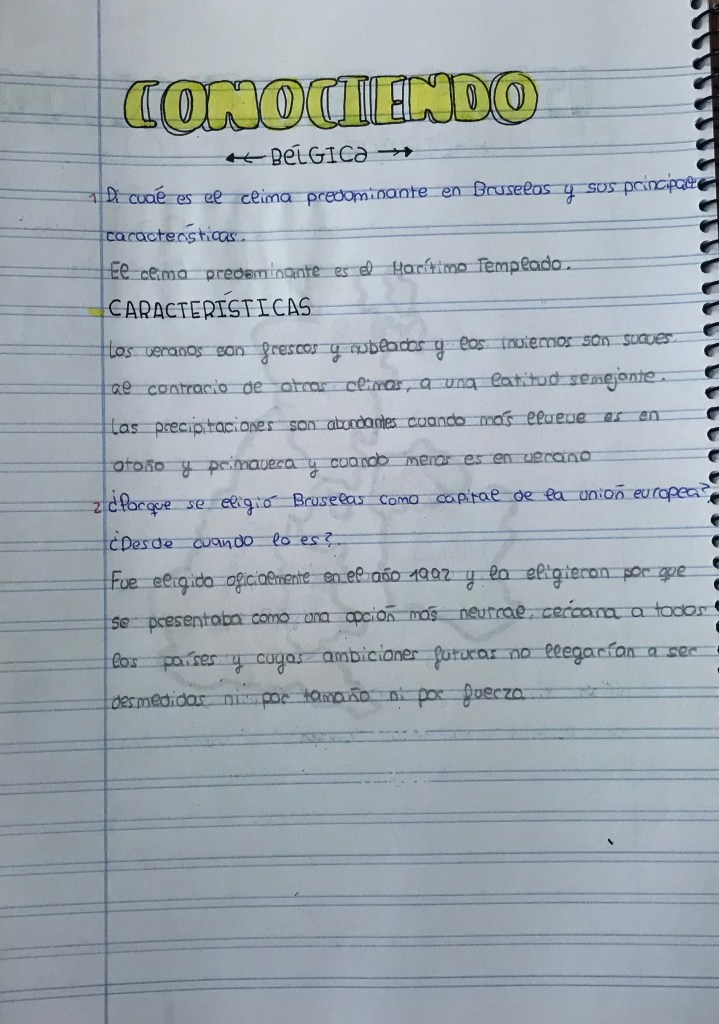 CONOCIENDO
BÉLGICA
1 Di cuál es el clima predominante en Bruselas y sus principales
características.
El clima predominante es el Marítimo Templado.
- CARACTERÍSTICAS
Los veranos son frescos y nublados y los inviernos son suaves
al contrario de otros climas, a una latitud semejante.
Las precipitaciones son abundantes cuando más llueve es en
otoño y primavera y cuando menos es en verano
2 ¿Porque se eligió Bruselas como capital de la unión europea?
¿Desde cuando lo es?
Fue elegida oficialmente en el año 1992 y la eligieron por que
se presentaba como una opción más neutral, cercana a todos
los países y cuyas ambiciones futuras no llegarían a ser
desmedidas ni por tamaño ni por fuerza